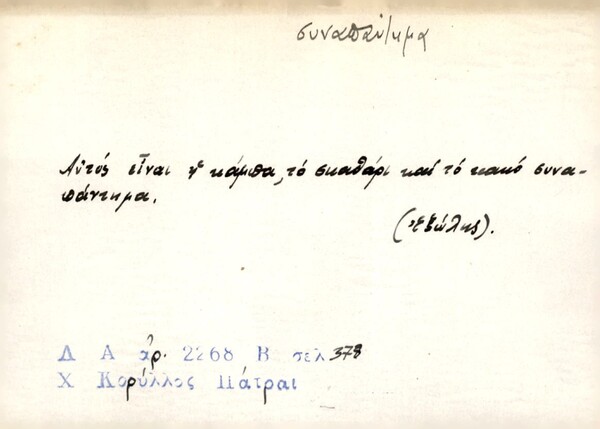 συναπάντημα
Αὐτός εἶναι ἡ κάμπα, τό σκαθάρι καί τό κακό συνα-
πάντημα.
(ἐξώλης).
Δ Α ἀρ. 2268 Β σελ 378
Χ Κορύλλος Πάτραι